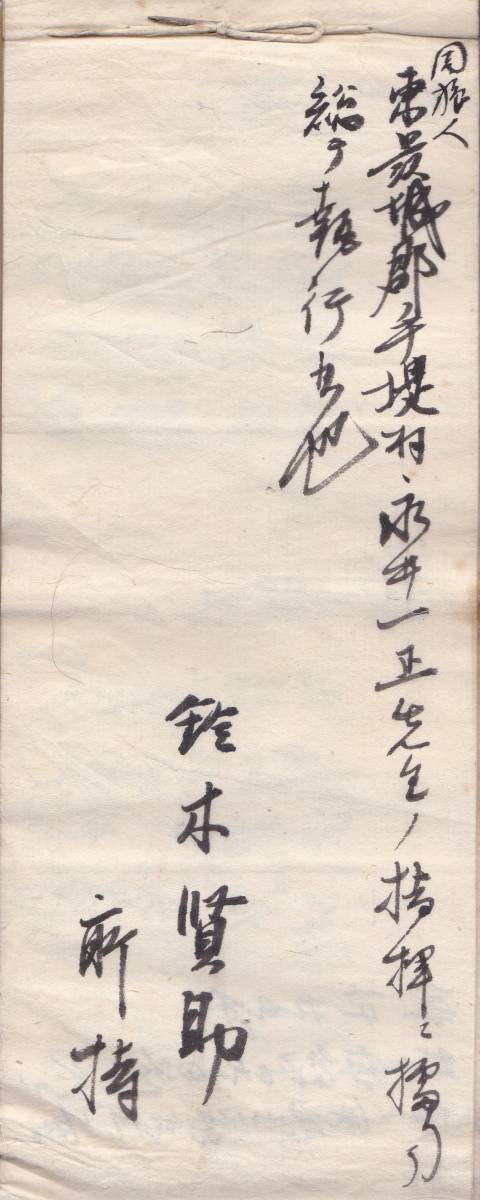 周旋人
東茨城郡手堤村、永井一正先生ノ指揮ニ據リ
総テ執行者也
鈴木賢助
所持